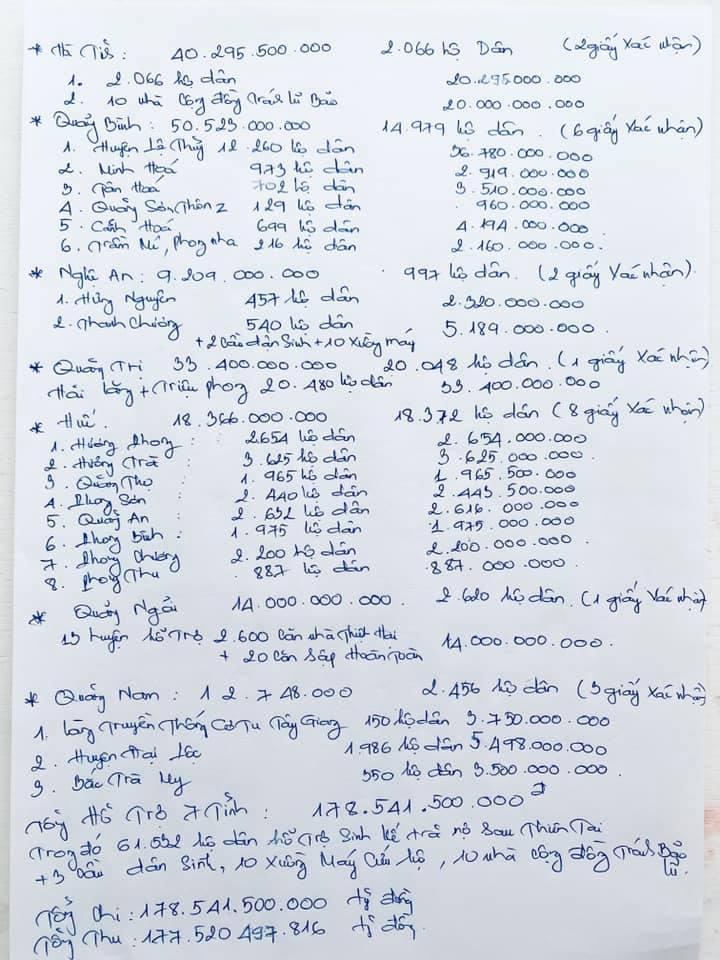 * Hà Tĩnh : 40.295.500.000 2.066 hộ Dân (2 giấy Xác nhận)
1. 2.066 hộ dân 20.295.000.000
2. 10 nhà Cộng đồng Tránh lũ Bão 20.000.000.000
* Quảng Bình : 50.523.000.000 14.979 hộ dân . (6 giấy Xác nhận)
1. Huyện Lệ Thủy 12.260 hộ dân 36.780.000.000
2. Minh Hoá 973 hộ dân 2.919.000.000
3. Tân Hoá 702 hộ dân 3.510.000.000
4. Quảng Sơn, Thôn 2 129 hộ dân 960.000.000
5. Cảnh Hoá 699 hộ dân 4.194.000.000
6. Trầm Mé, Phong nha 216 hộ dân 2.160.000.000.
* Nghệ An : 9.209.000.000 997 hộ dân. (2 giấy Xác nhận).
1. Hưng Nguyên 457 hộ dân 2.320.000.000
2. Thanh Chương 540 hộ dân 5.189.000.000.
+ 2 Cầu dân Sinh + 10 Xuồng máy
* Quảng Trị 33.400.000.000 20.048 hộ dân. (1 giấy Xác nhận)
Hải Lăng + Triệu phong 20.480 hộ dân 33.400.000.000
* Huế. 18.366.000.000 18.372 hộ dân (8 giấy Xác nhận)
1. Hương Phong : 2654 hộ dân 2.654.000.000
2. Hương Trà : 3.625 hộ dân 3.625.000.000
3. Quảng Thọ 1.965 hộ dân 1.965.500.000
4. Phong Sơn : 2.440 hộ dân 2.443.500.000
5. Quảng An : 2.632 hộ dân 2.616.000.000
6. Phong Bình : 1.975 hộ dân 1.975.000.000
7. Phong Chương 2.200 hộ dân 2.200.000.000
8. Phong Thu 887 hộ dân 887.000.000
* Quảng Ngãi 14.000.000.000. 2.620 hộ dân. (1 giấy Xác nhận)
13 huyện hỗ Trợ 2.600 Căn nhà Thiệt Hại 14.000.000.000.
+ 20 Căn Sập Hoàn Toàn
* Quảng Nam : 12.748.000 2.456 hộ dân (3 giấy Xác nhận)
1. Làng Truyền Thống Cơ Tu Tây Giang 150 hộ dân 3.750.000.000
2. Huyện Đại Lộc 1.986 hộ dân 5.498.000.000
3. Bắc Trà My 350 hộ dân 3.500.000.000.
Tổng Hỗ Trợ 7 Tỉnh : 178.541.500.000
Trong đó 61.532 hộ dân hỗ Trợ Sinh kế trả nợ Sau Thiên Tai
+ 3 Cầu dân Sinh, 10 Xuồng Máy Cứu hộ, 10 nhà Cộng đồng Tránh Bão lũ.
Tổng Chi : 178.541.500.000 tỷ đồng
Tổng Thu : 177.520.497.816 tỷ đồng.